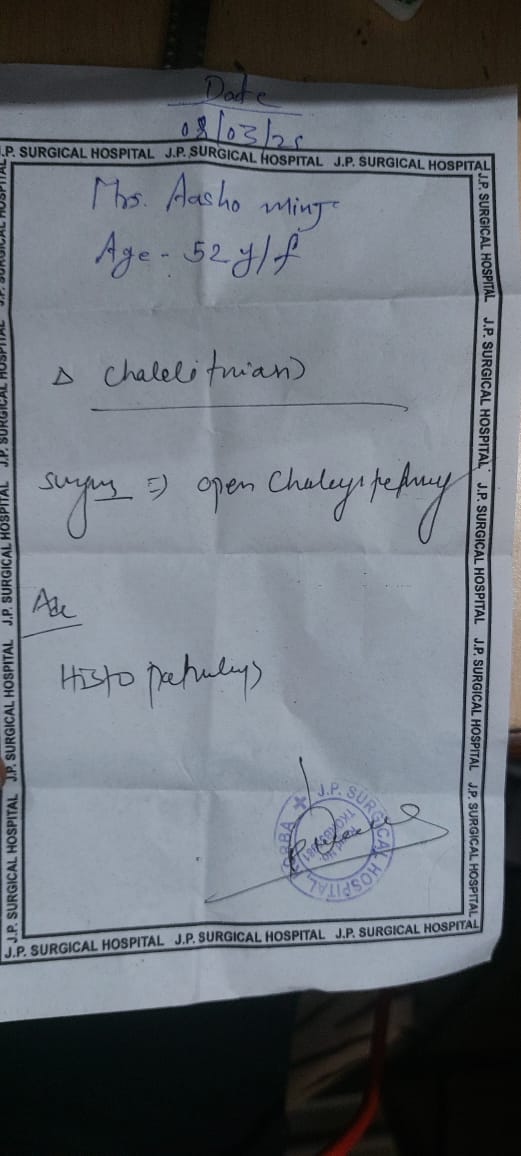 Date
08/03/25
J.P. SURGICAL HOSPITAL J.P. SURGICAL HOSPITAL J.P. SURGICAL HOSPITAL
Mrs. Aasho minj
Age - 52 y/f
Δ
⇒ open
Adv
Histo
J.P. SURGICAL HOSPITAL KORBA
J.P. SURGICAL HOSPITAL J.P. SURGICAL HOSPITAL J.P. SURGICAL HOSPITAL
J.P. SURGICAL HOSPITAL J.P. SURGICAL HOSPITAL J.P. SURGICAL HOSPITAL J.P. SURGICAL HOSPITAL J.P. SURGICAL HOSPITAL
J.P. SURGICAL HOSPITAL J.P. SURGICAL HOSPITAL J.P. SURGICAL HOSPITAL J.P. SURGICAL HOSPITAL J.P. SURGICAL HOSPITAL